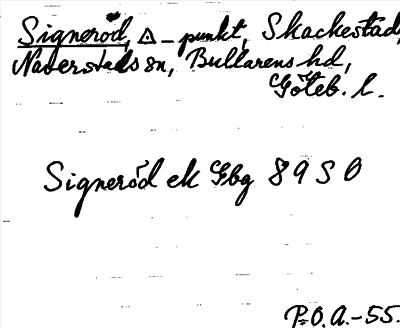 Signeröd, △ - punkt, Skackestad,
Naverstads sn, Bullarens hd,
Göteb. l.
Signeröd ek Gbg 89 S O
P.O.A.-55.